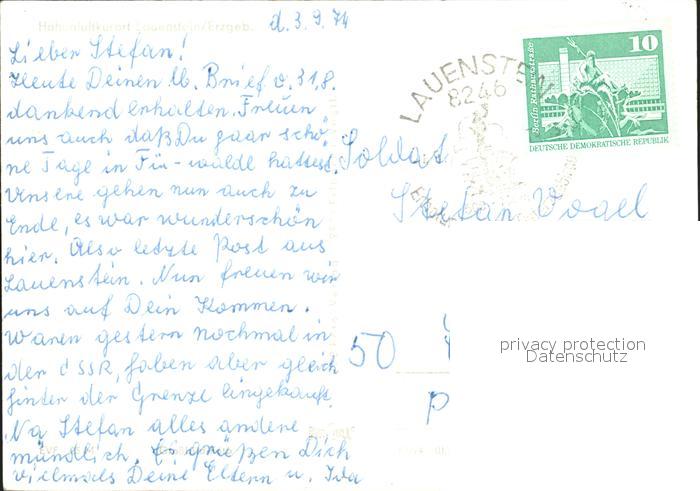 Höhenluftkurort Lauenstein/Erzgeb.
d. 3.9.74
Lieber Stefan!
Heute Deinen lb. Brief v. 31.8.
dankend erhalten. Freuen
uns auch daß Du gaar schö-
ne Tage in Fü-walde hattest.
Unsere gehen nun auch zu
Ende, es war wunderschön
hier. Also letzte Post aus
Lauenstein. Nun freuen wir
uns auf Dein Kommen.
Waren gestern nochmal in
der ČSSR, haben aber gleich
hinter der Grenze eingekauft.
Na Stefan alles andere
mündlich. Es grüßen Dich
vielmals Deine Eltern u. Ida
LAUENSTEIN
8246
10
Berlin Rathausstraße
DEUTSCHE DEMOKRATISCHE REPUBLIK
Soldat
Stefan Vogel
50
P
privacy protection
Datenschutz